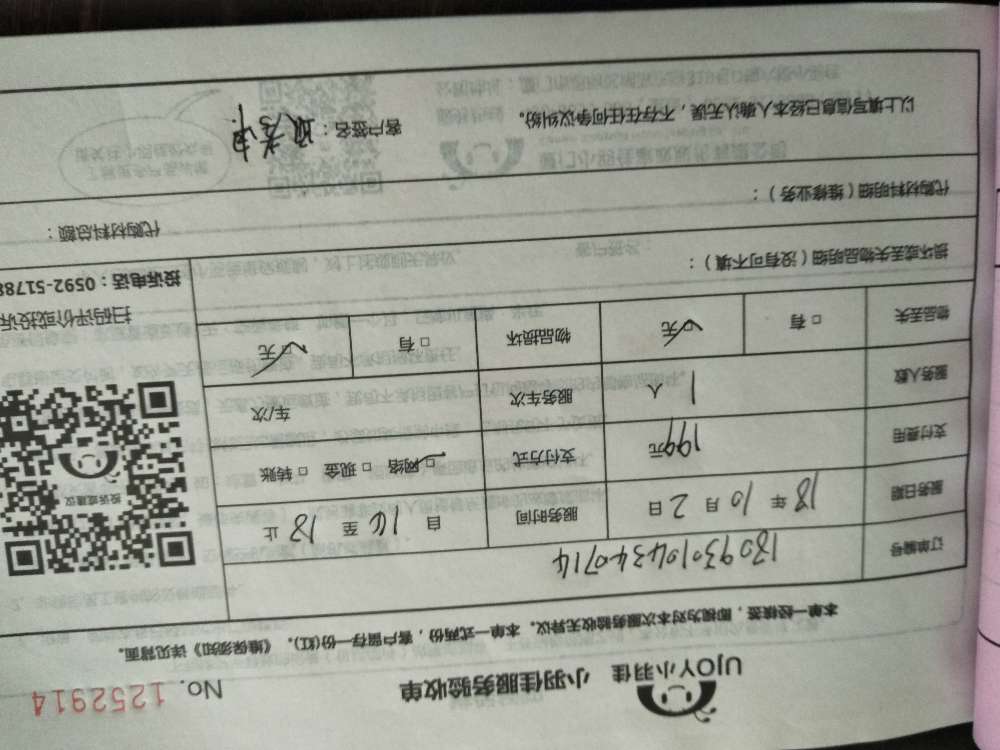 UJOY小羽佳 小羽佳服务验收单 No. 1252914
本单一经核签，即视为对本次服务验收无异议。本单一式两份，客户留存一份(红)。《维保须知》详见背面。
订单编号 180930104340714
服务日期 18 年 10 月 2 日 服务时间 自 16 至 18 止
支付费用 199元 支付方式 ☑网络 □现金 □转账
服务人数 1 人 服务车次 车/次
物品丢失 □有 ☑无 物品损坏 □有 ☑无
投诉或建议
扫码评价或投诉
投诉电话：0592-5178
损坏或丢失物品明细（没有可不填）：
代购材料明细（维修业务）：
代购材料总额：
以上填写信息已经本人确认无误，不存在任何争议纠纷。
客户签名：